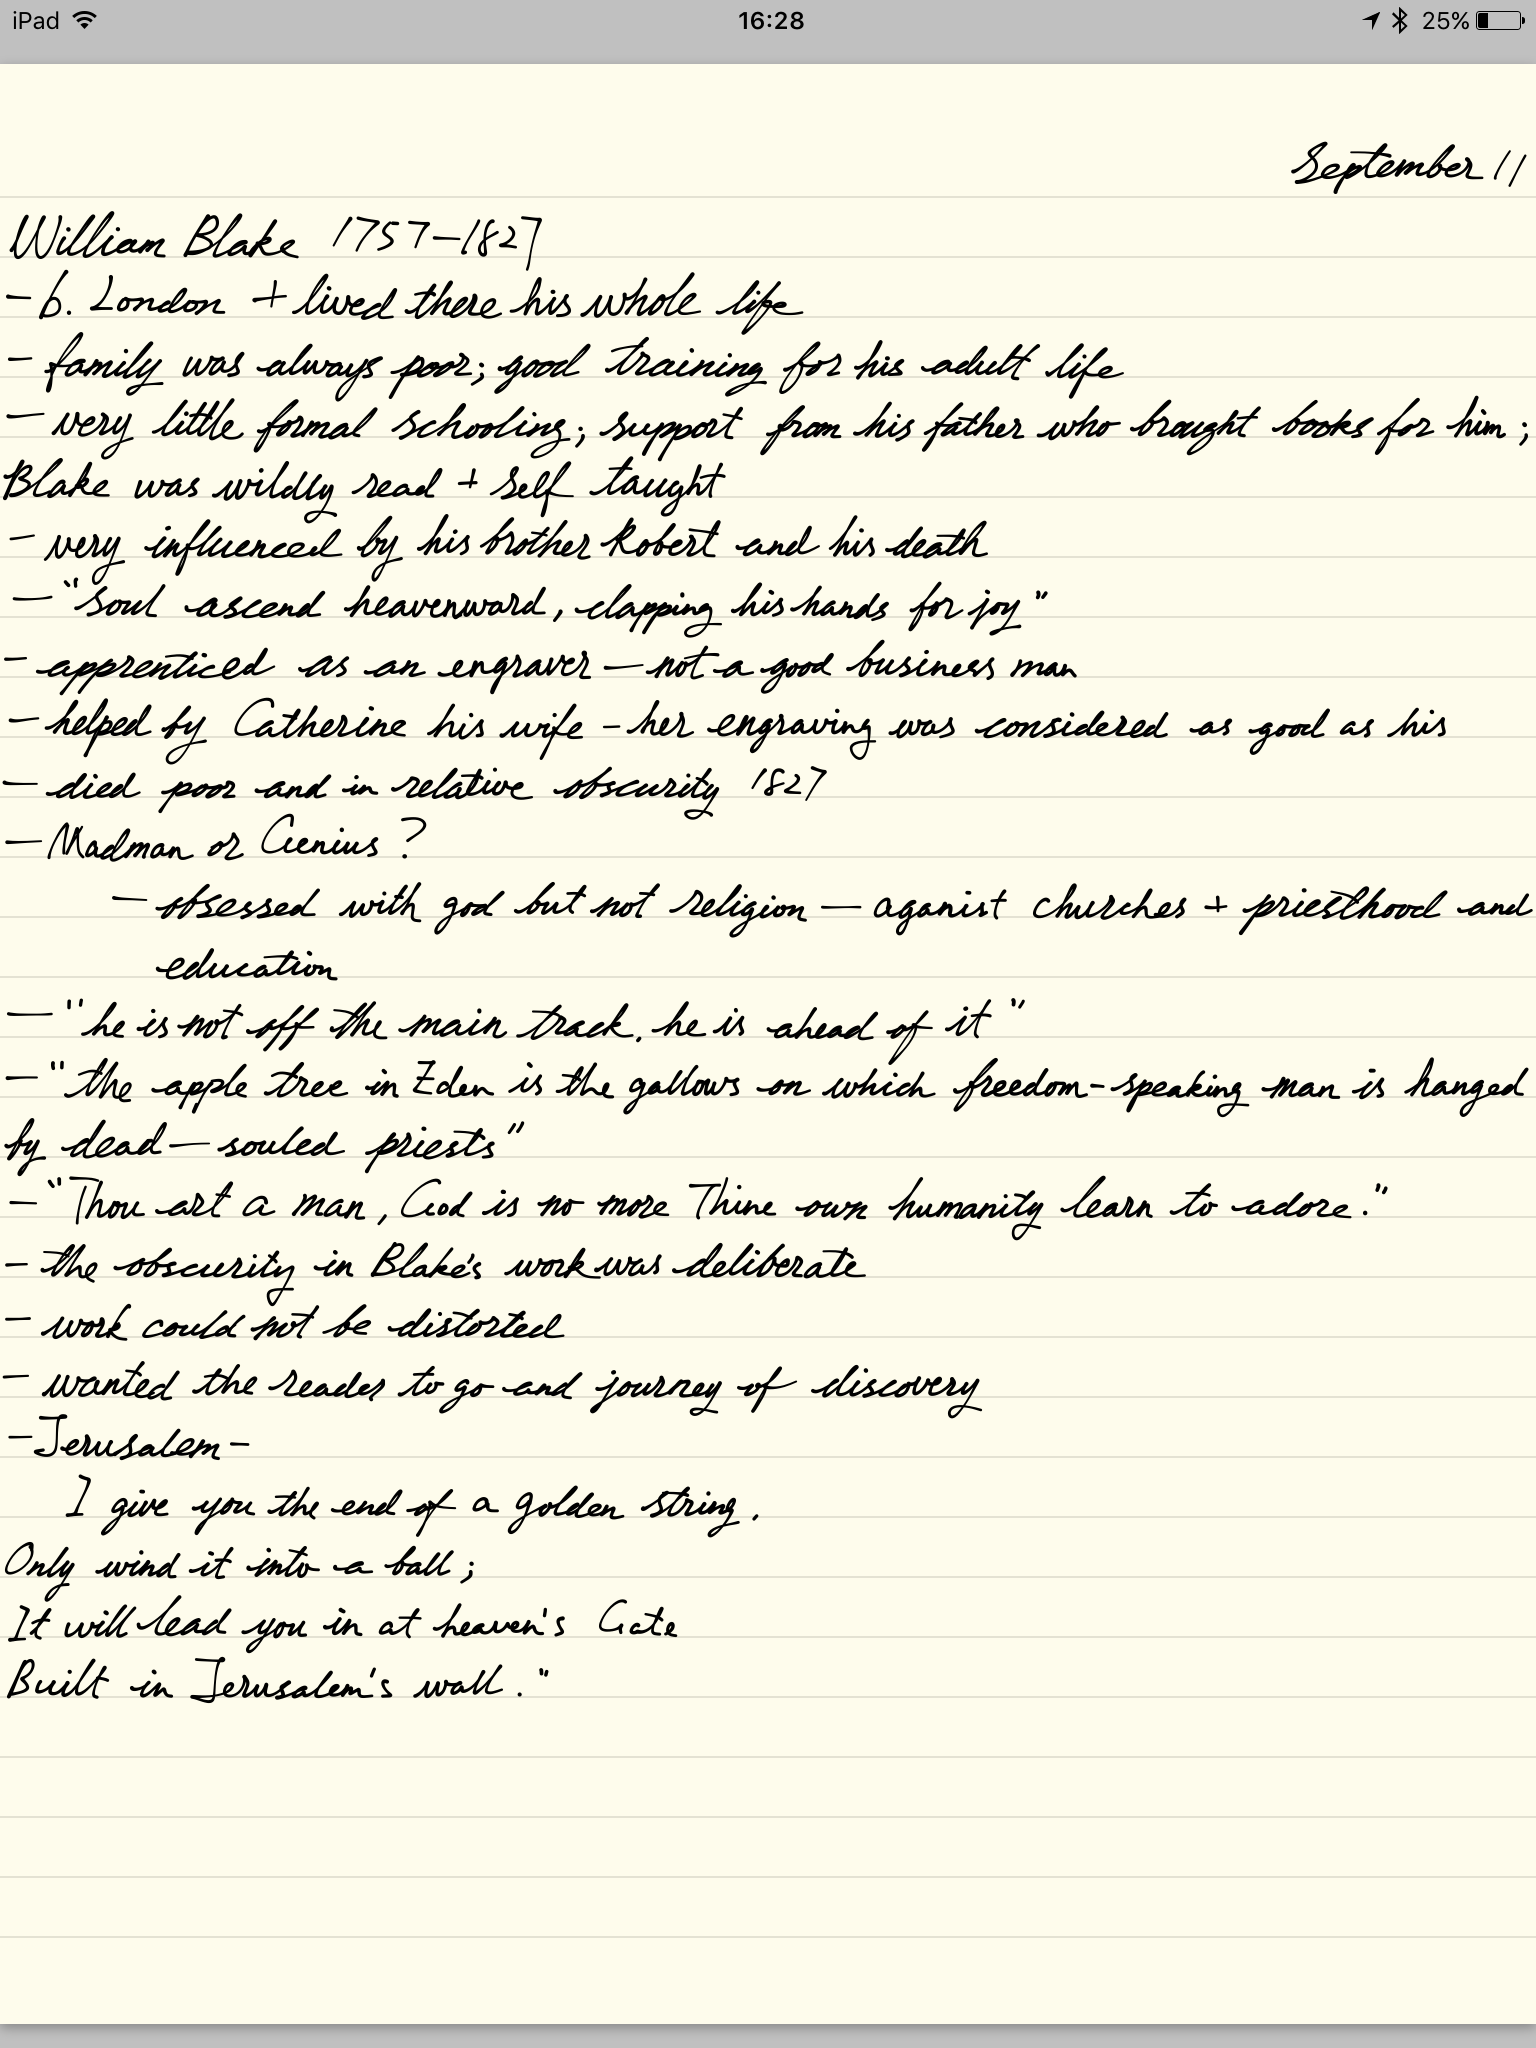 iPad 16:28 25%
September 11
William Blake 1757-1827
- b. London + lived there his whole life
- family was always poor; good training for his adult life
- very little formal schooling; support from his father who brought books for him;
Blake was wildly read + self taught
- very influenced by his brother Robert and his death
- "soul ascend heavenward, clapping his hands for joy"
- apprenticed as an engraver - not a good business man
- helped by Catherine his wife - her engraving was considered as good as his
- died poor and in relative obscurity 1827
- Madman or Genius?
- obsessed with god but not religion - aganist churches + priesthood and
education
- "he is not off the main track, he is ahead of it"
- "the apple tree in Eden is the gallows on which freedom-speaking man is hanged
by dead-souled priests"
- "Thou art a man, God is no more Thine own humanity learn to adore."
- the obscurity in Blake's work was deliberate
- work could not be distorted
- wanted the reader to go and journey of discovery
- Jerusalem -
I give you the end of a golden string.
Only wind it into a ball;
It will lead you in at heaven's Gate
Built in Jerusalem's wall."